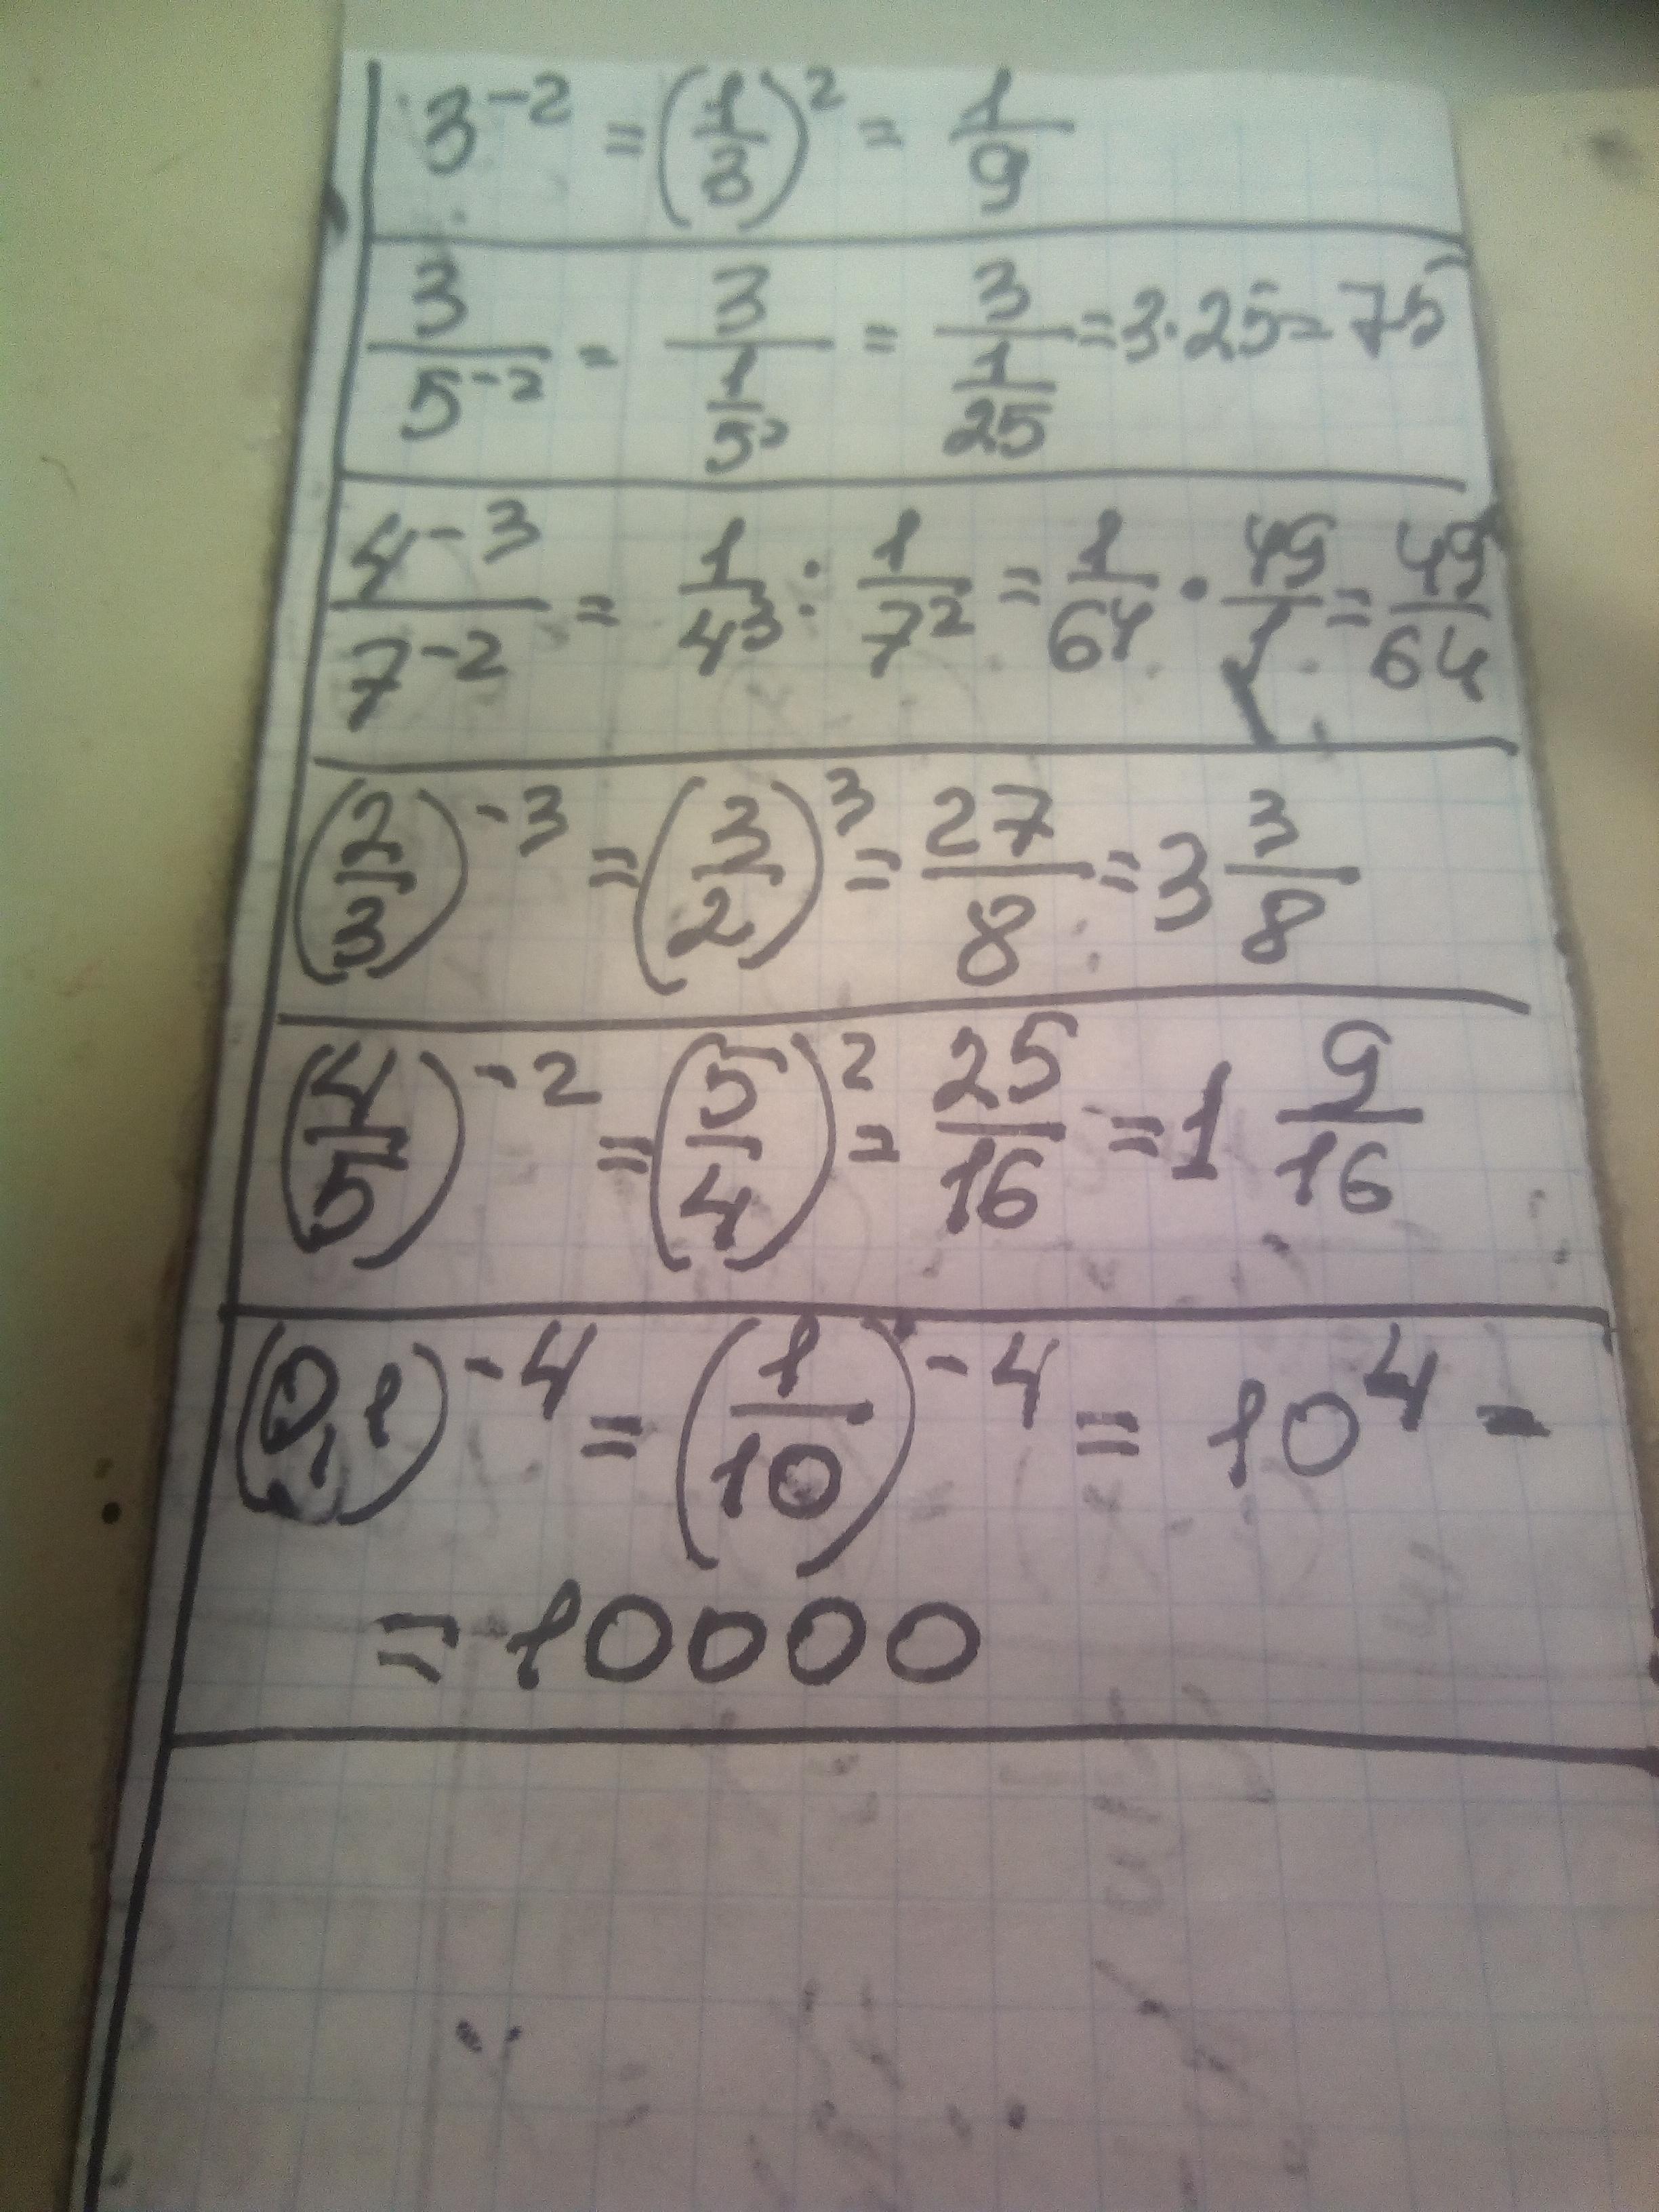 3⁻² = (1/3)² = 1/9
3/5⁻² = 3/(1/5²) = 3/(1/25) = 3·25 = 75
4⁻³/7⁻² = 1/4³ : 1/7² = 1/64 · 49/1 = 49/64
(2/3)⁻³ = (3/2)³ = 27/8 = 3 3/8
(4/5)⁻² = (5/4)² = 25/16 = 1 9/16
(0,1)⁻⁴ = (1/10)⁻⁴ = 10⁴ =
= 10000